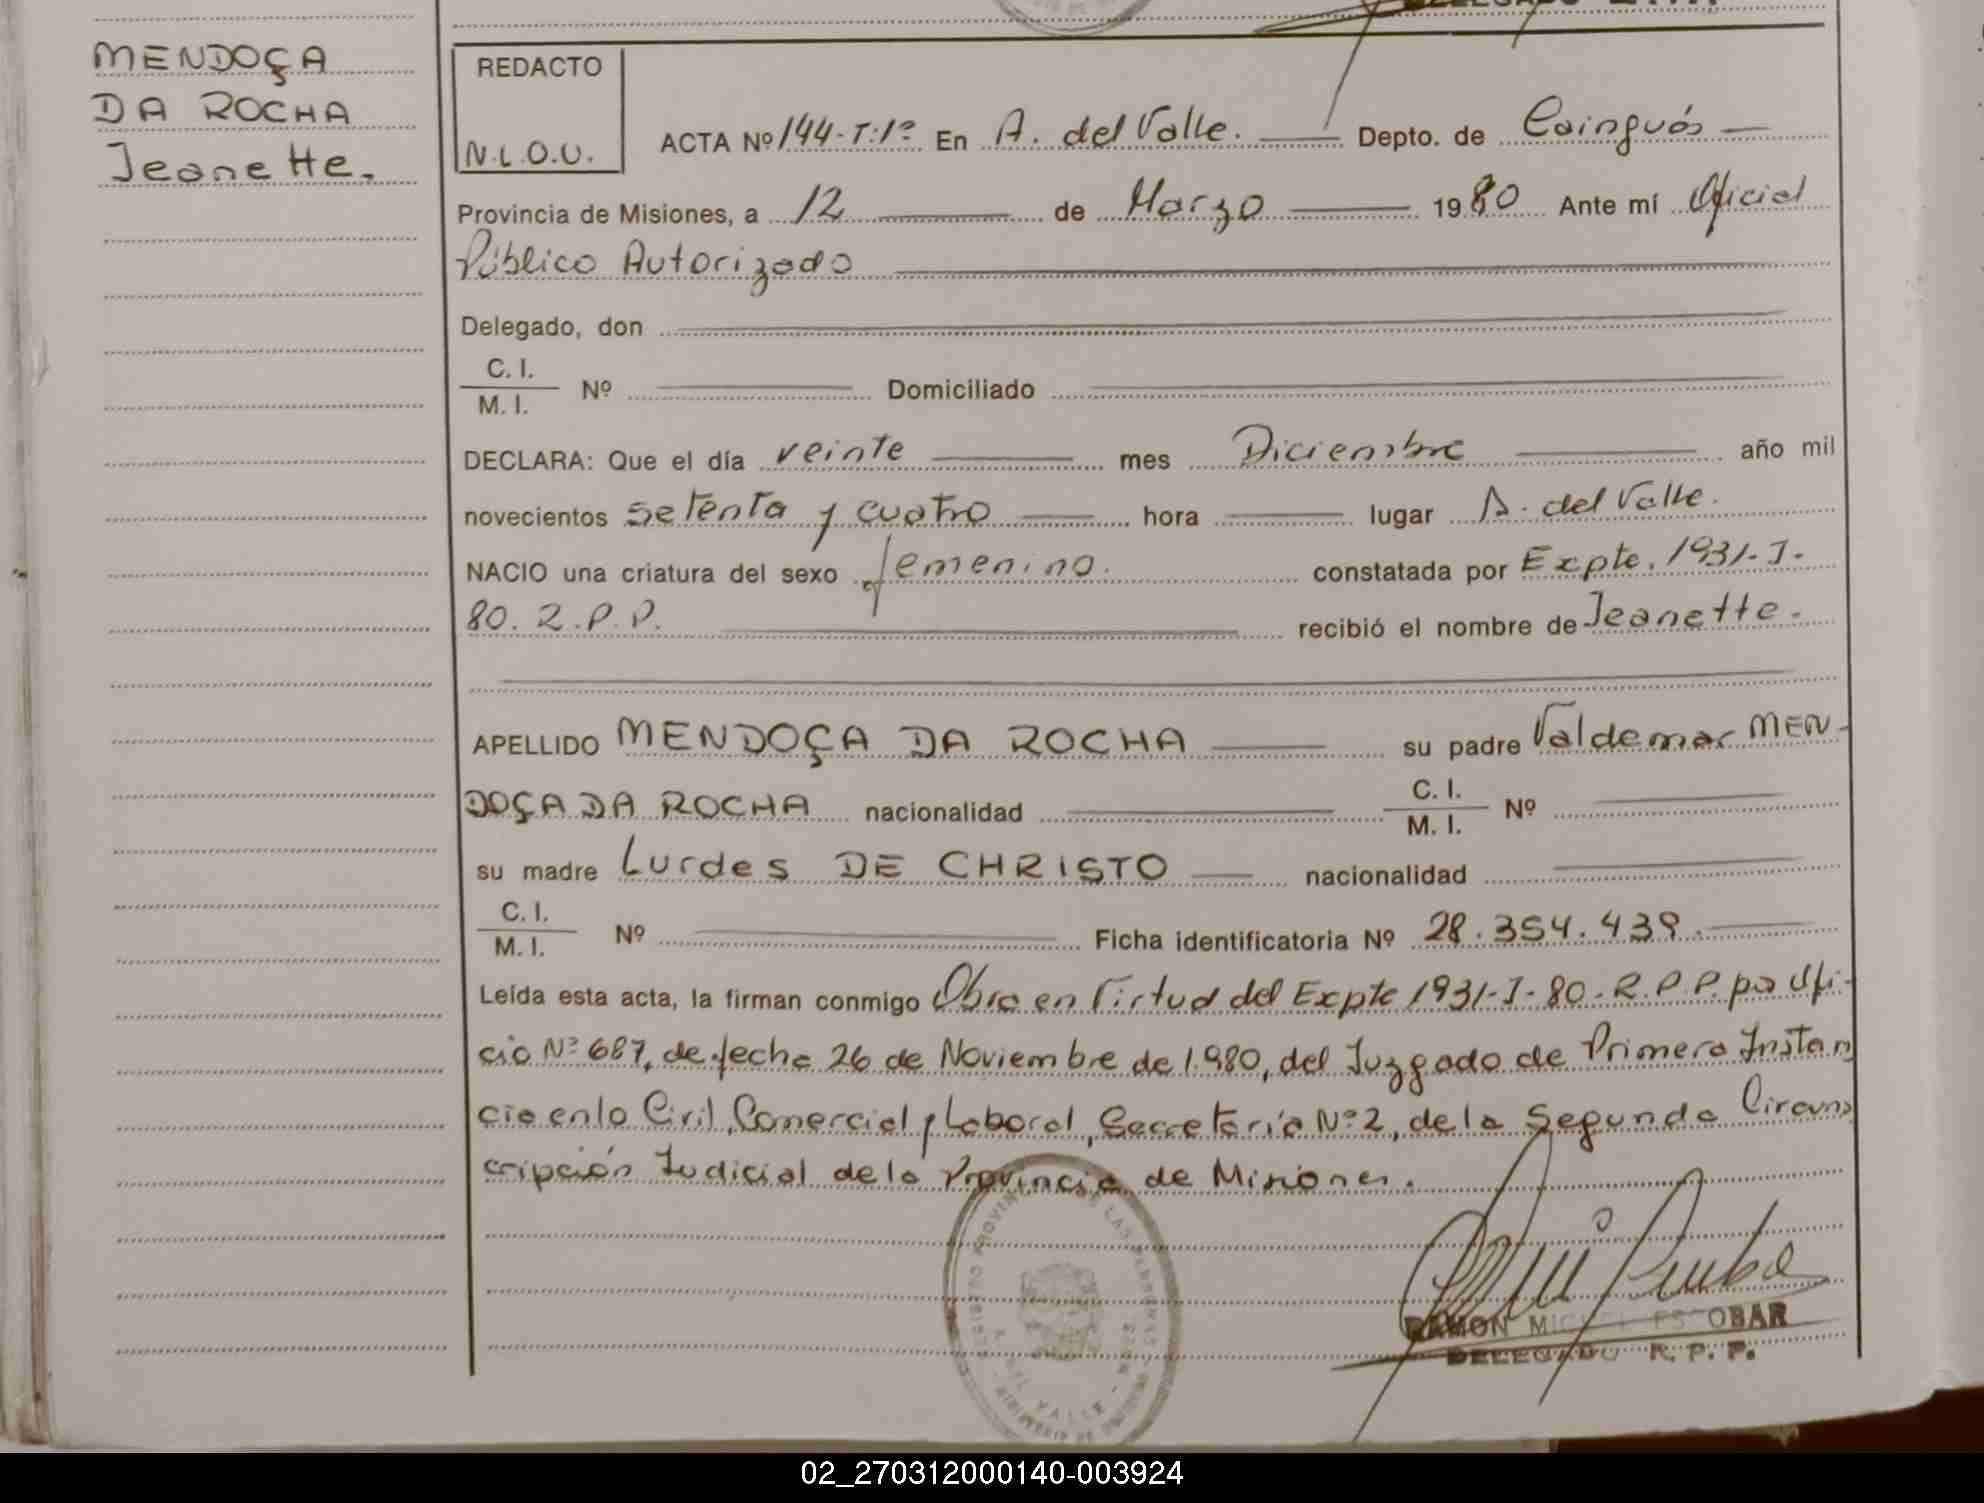 MENDOÇA
DA ROCHA
Jeanette.
REDACTO
N.L.O.U.
ACTA Nº 144-T:1º En A. del Valle. Depto. de Cainguás
Provincia de Misiones, a 12 de Marzo 1980 Ante mí Oficial
Público Autorizado
Delegado, don
C. I.
M. I. Nº Domiciliado
DECLARA: Que el día veinte mes Diciembre año mil
novecientos setenta y cuatro hora lugar A. del Valle.
NACIO una criatura del sexo femenino. constatada por Expte. 1931-I-
80. R.P.P. recibió el nombre de Jeanette.
APELLIDO MENDOÇA DA ROCHA su padre Valdemar MEN-
DOÇA DA ROCHA nacionalidad C. I. M. I. Nº
su madre Lurdes DE CHRISTO nacionalidad
C. I.
M. I. Nº Ficha identificatoria Nº 28.354.439.
Leída esta acta, la firman conmigo Obra en Virtud del Expte 1931-I-80-R.P.P. por Ofi-
cio Nº 687, de fecha 26 de Noviembre de 1.980, del Juzgado de Primera Instan
cia en lo Civil, Comercial y Laboral, Secretaría Nº 2, de la Segunda Circuns
cripción Judicial de la Provincia de Misiones.
RAMON MIGUEL ESCOBAR
DELEGADO R. P. P.
02_270312000140-003924